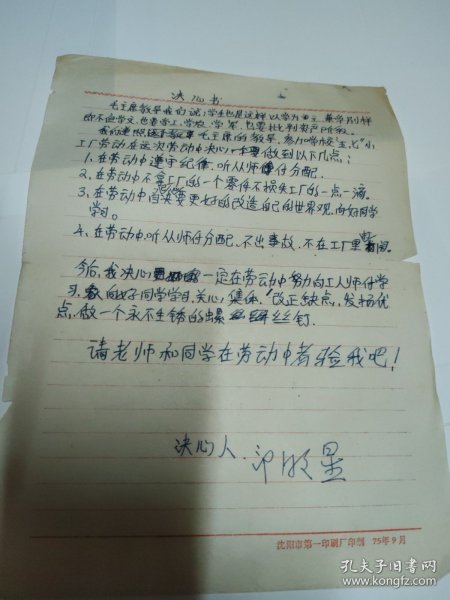 决心书
毛主席教导我们说：学生也是这样以学为主，兼学别样
即不但学文，也要学工、学农、学军，也要批判资产阶级。
我们遵照毛主席的教导，参加学校"五·七"小
工厂劳动在这次劳动中决心做到以下几点：
1、在劳动中遵守纪律，听从师付分配。
2、在劳动中不拿工厂的一个零件不损失工厂的一点一滴。
3、在劳动中自决要更好的改造自己的世界观，向好同学
学习。
4、在劳动中听从师付分配，不出事故，不在工厂里
今后，我决心一定在劳动中努力向工人师付学
习，向好同学学习，关心集体，改正缺点，发扬优
点，做一个永不生锈的螺丝钉．
请老师和同学在劳动中考验我吧！
决心人．
沈阳市第一印刷厂印制 75年9月
孔夫子旧书网
www.kongfz.com